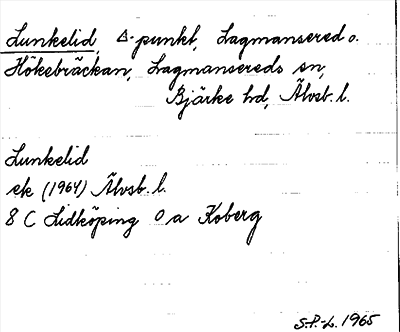 Lunkelid, Δ-punkt, Lagmansered o.
Hökebräckan, Lagmansereds sn,
Bjärke hd, Älvsb. l.
Lunkelid
ek (1964) Älvsb. l.
8 C Lidköping O, a Koberg
S.P.-L. 1965